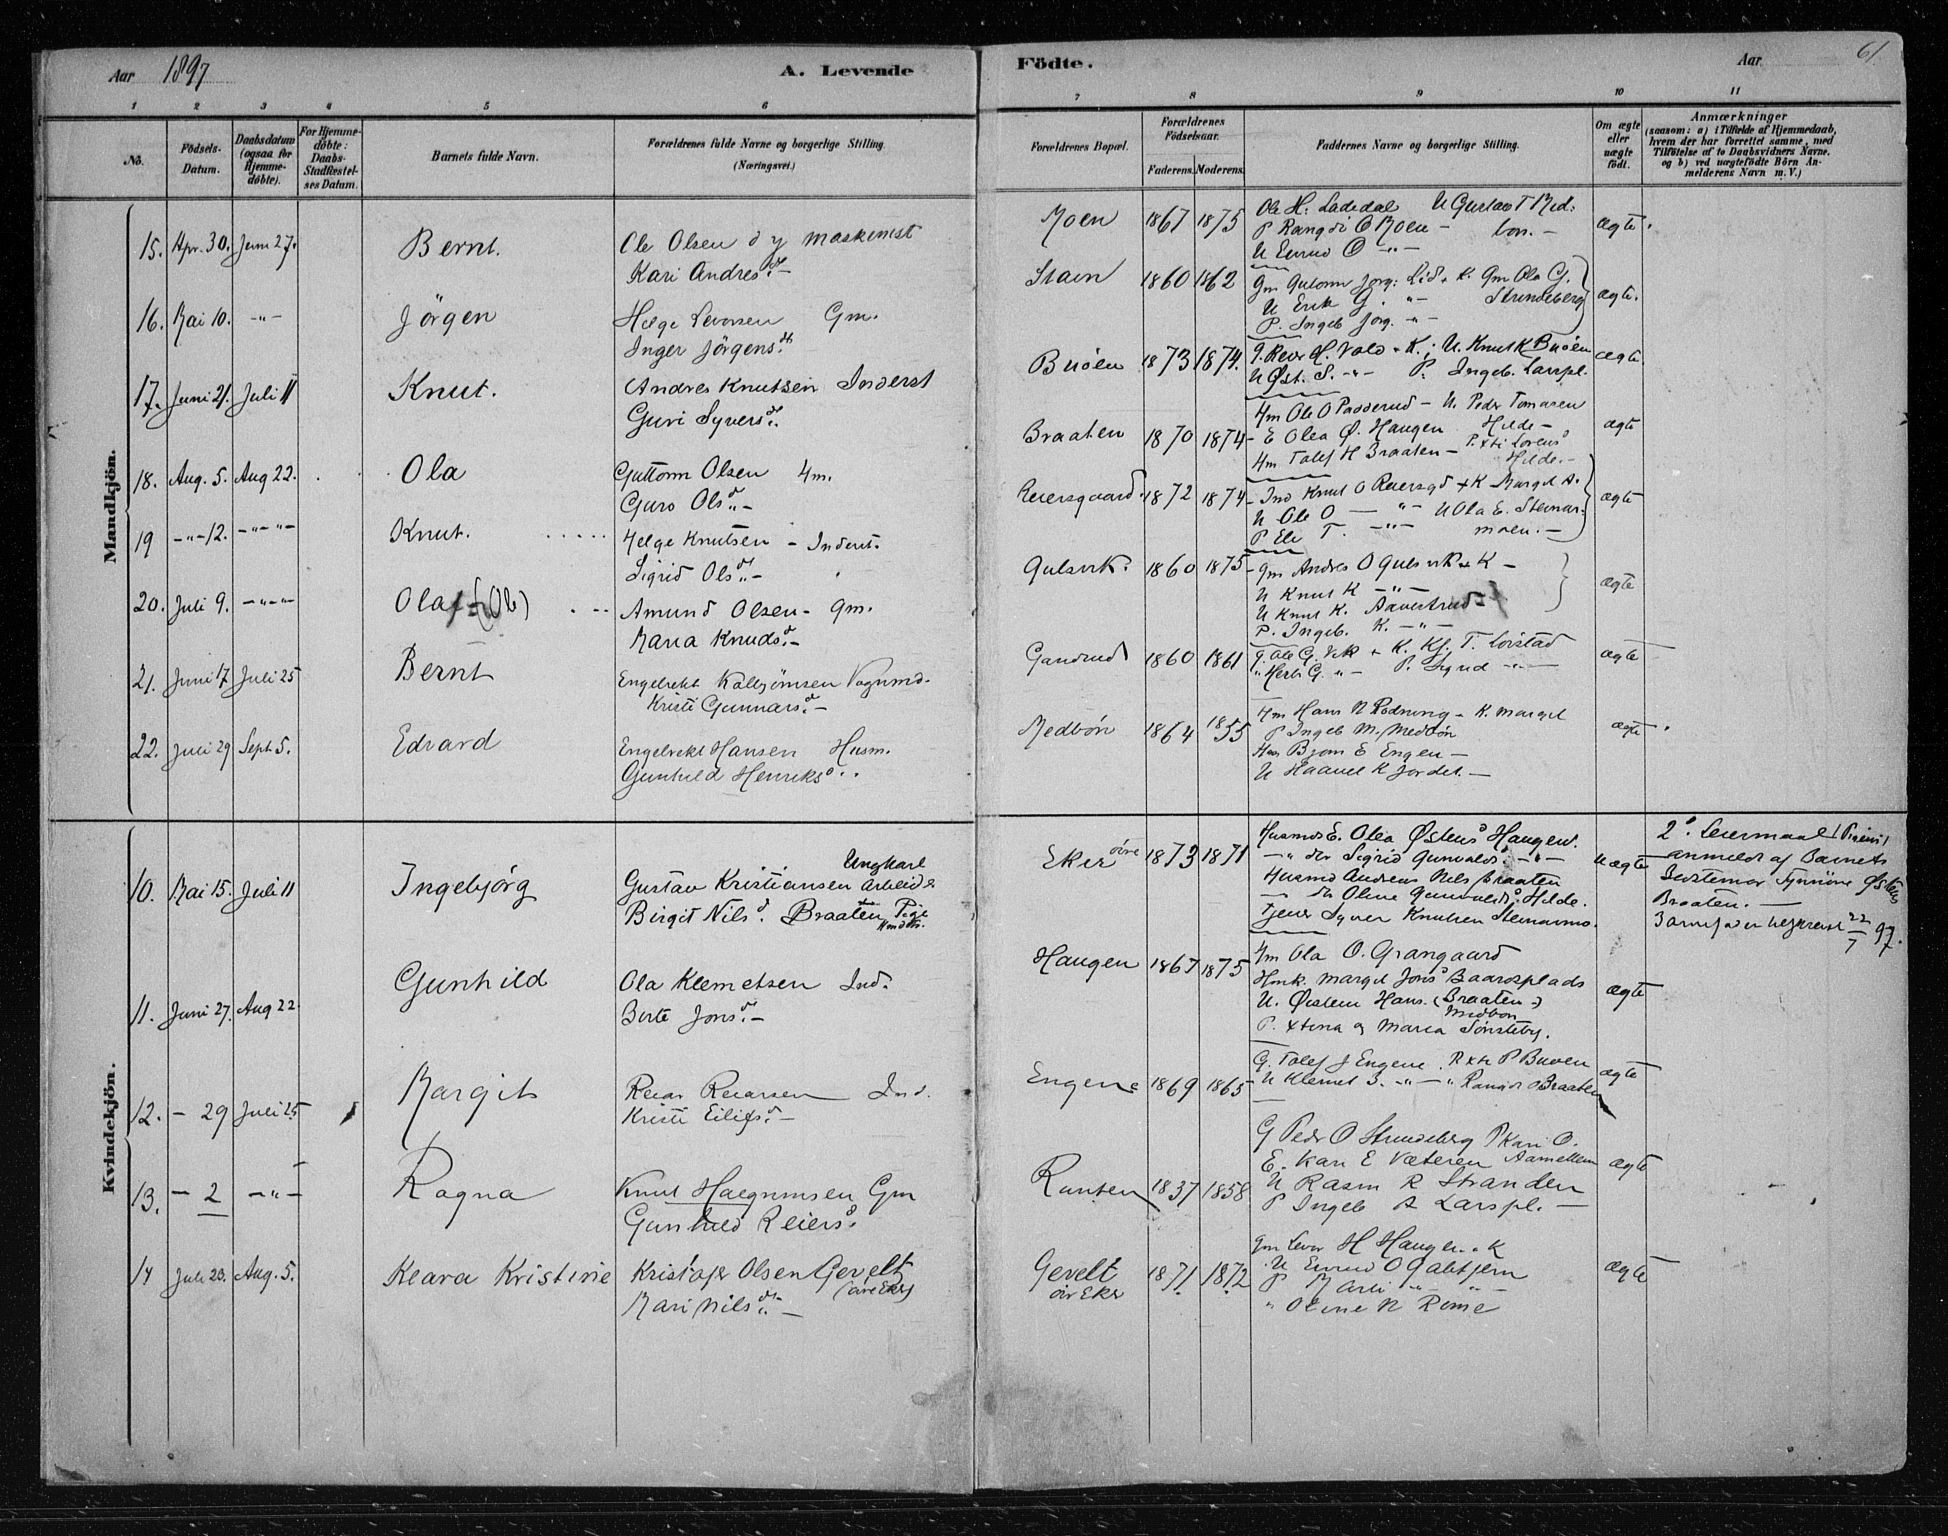 Aar 1897
A. Levende
Födte.
Aar
61
1 2 3 4 5 6 7 8 9 10 11
No.
Födsels-Datum.
Daabsdatum (ogsaa for Hjemmedöbte).
For Hjemmedöbte: Daabs-Stadfæstelses Datum.
Barnets fulde Navn.
Forældrenes fulde Navne og borgerlige Stilling. (Næringsvei.)
Forældrenes Bopæl.
Forældrenes Födselsaar.
Faderens. Moderens.
Faddernes Navne og borgerlige Stilling.
Om ægte eller uægte födt.
Anmærkninger
(saasom: a) i Tilfælde af Hjemmedaab, hvem der har forrettet samme, med Tilföielse af to Daabsvidners Navne, og b) ved uægtefödte Börn Anmelderens Navn m. V.)
Mandkjön.
15. Apr. 30. Juni 27. Bernt. Ole Olsen d y Maskinist
Kari Andresd. –
Moen 1867 1875 Ole H. Ladedal U Gustav T Med:
P Rangdi O Moen – bon. –
U Eivind O –"–
ægte.
16. Mai 10. –"– Jörgen Helge Levorsen Gm.
Inger Jörgensd.
1860 1862 Gm Gutorm Jörg: Lid + K. Gm Ola G.
U Erik G. –"– Strundeberg
P. Ingeb Jörg. –"–
ægte.
17. Juni 21. Juli 11 Knut. Andres Knutsen Inderst
Guri Syversd.
Buöen 1873 1874. H. Vold + K.; U. Knut K Buöen
U Øst. S. –"– P. Ingeb. Larspl.
ægte
18. Aug. 5. Aug 22. Ola Guttorm Olsen Hm.
Guro Olsd. –
Braaten 1870 1874 Hm Ole O Padderud – U. Peder Tomasen
E Olea Ø. Haugen Hilde –
Hm Tolef H Braaten – Hilde. –
ægte
19 –"– 12. –"–"– Knut. Helge Knutsen – Inderst.
Sigrid Olsd. –
Reiersgaard. 1872 1874 Ind Knut O Reiersgd + K Margit A.
U Ole O –"– U Ola E. Steinars:
P Eli T. –"– moen. –
ægte
20. Juli 9. –"–"– Olaf = (Ole) Amund Olsen – Gm.
Maria Knudsd. –
Gulsvik. 1860 1875 Gm Andres O Gulsvik + K –
U Knut K –"–
U Knut K. Aavestrud –
P. Ingeb. K. –"–
ægte
21. Juni 17 Juli 25 Bernt Engebrekt Kolbjörnsen
Kristi Gunnarsd. –
Gandrud 1860 1861 G. Ole G. Vik + K. Kf. T. Lörstad
" Herb. G. "– P. Sigrid –"–
ægte
22. Juli 29 Sept. 5. Edvard Engebrekt Hansen Husm.
Gunhild Henriksd.
Medbön 1864 1855 Hm Hans N Rodning – K. Margit
P Ingeb M. Medbön
Hm Bjorn E Engen –
U Haavel K Jordet. –
ægte.
Kvindekjön.
10. Mai 15. Juli 11 Ingebjörg Gustav Kristiansen Ungkarl Arbeider
Birgit Nilsd. Braaten Pige
Eker övre 1873 1871 Husmds E. Olea Østensd Haugen.
–"– dtr Sigrid Gunvaldsd –"–
Husmd Andreas Nils Braaten
– dtr Oline Gunvaldsd. Hilde.
Tjener Syver Knutsen Steinarmo.
uægte
2. Leiermaal
anmeldt af Barnets
Bedstemor Synnöve Østens
Braaten. –
22/7 97.
11. Juni 27. Aug 22 Gunhild Ola Klemetsen Ind.
Berte Jonsd. –
Haugen 1867 1875 Hm Ola O. Grangaard
Hmk. Margit Jonsd Baarosplads
U. Østein Hans. (Braaten –)
Medbon
P. Xtina og Maria Sönsteby.
ægte
12. – 29 Juli 25 Margit Reiar Reiarsen Ind.
Kristi Eilifsd. –
Engene 1869 1865 G. Tolef J Engene. P Xti P Buoen
U Klemet S. –"– " Rangdi O Braaten
ægte
13. – 2 –"– Ragna Knut Haagensen Gm
Gunhild Reiersd.
Runten 1837 1858 G Peder O Strundeberg P Kari O.
E. Kari E Væteren Aamellem
U Rasm R Stranden
P Ingeb A Larspl. –
ægte
14 Juli 23. Aug. 5. Klara Kristine Kristofer Olsen Gevelt
(övre Eker)
Mari Nilsd. –
Gevelt
övr Eker
1871 1872 Gm Levor H Haugen + K
U Eivind O Gabtjern
P Marli –"– –"–
" Oline N Rime
ægte